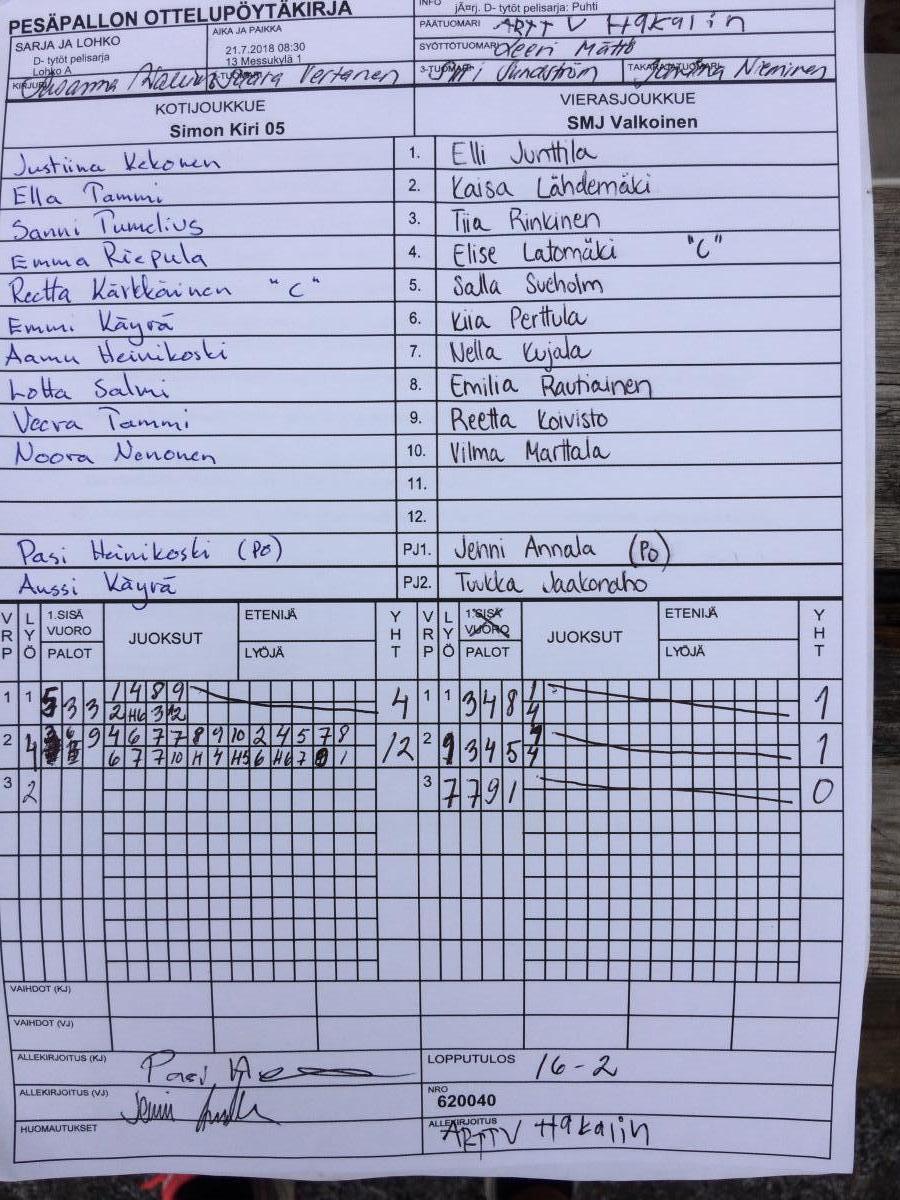 PESÄPALLON OTTELUPÖYTÄKIRJA
INFO
jÃ¤rj. D- tytöt pelisarja: Puhti
SARJA JA LOHKO
D- tytöt pelisarja
Lohko A
AIKA JA PAIKKA
21.7.2018 08:30
13 Messukylä 1
PÄÄTUOMARI
ARTTV Hakalin
SYÖTTÖTUOMARI
KIRJURI
Susanna
2-TUOMARI
Vertanen
3-TUOMARI
Sundström
TAKARAJATUOMARI
Nieminen
KOTIJOUKKUE
Simon Kiri 05
VIERASJOUKKUE
SMJ Valkoinen
Justiina Kekonen 1. Elli Junttila
Ella Tammi 2. Kaisa Lähdemäki
Sanni Tumelius 3. Tiia Rinkinen
Emma Riepula 4. Elise Latomäki "C"
Reetta Kärkkäinen "C" 5. Salla Sveholm
Emmi Käyrä 6. Kiia Perttula
Aamu Heinikoski 7. Nella Kujala
Lotta Salmi 8. Emilia Rautiainen
Veera Tammi 9. Reetta Koivisto
Noora Nenonen 10. Vilma Marttala
11.
12.
Pasi Heinikoski (PO) PJ1. Jenni Annala (PO)
Anssi Käyrä PJ2. Tuukka Jaakonaho
VRP LYÖ 1.SISÄ VUORO PALOT JUOKSUT ETENIJÄ LYÖJÄ YHT VRP LYÖ 1.SISÄ VUORO PALOT JUOKSUT ETENIJÄ LYÖJÄ YHT
1 1 5 3 3 1 4 8 9 4 1 1 3 4 8 1 1
2 H6 3 12 4
2 4 9 4 6 7 7 8 9 10 2 4 5 7 8 12 2 9 3 4 5 4 1
6 7 7 10 H 4 H5 6 H6 7 1 4
3 2 3 7 7 9 1 0
VAIHDOT (KJ)
VAIHDOT (VJ)
ALLEKIRJOITUS (KJ)
Pasi
LOPPUTULOS
16-2
ALLEKIRJOITUS (VJ)
Jenni
NRO
620040
HUOMAUTUKSET
ALLEKIRJOITUS
ARTTV Hakalin